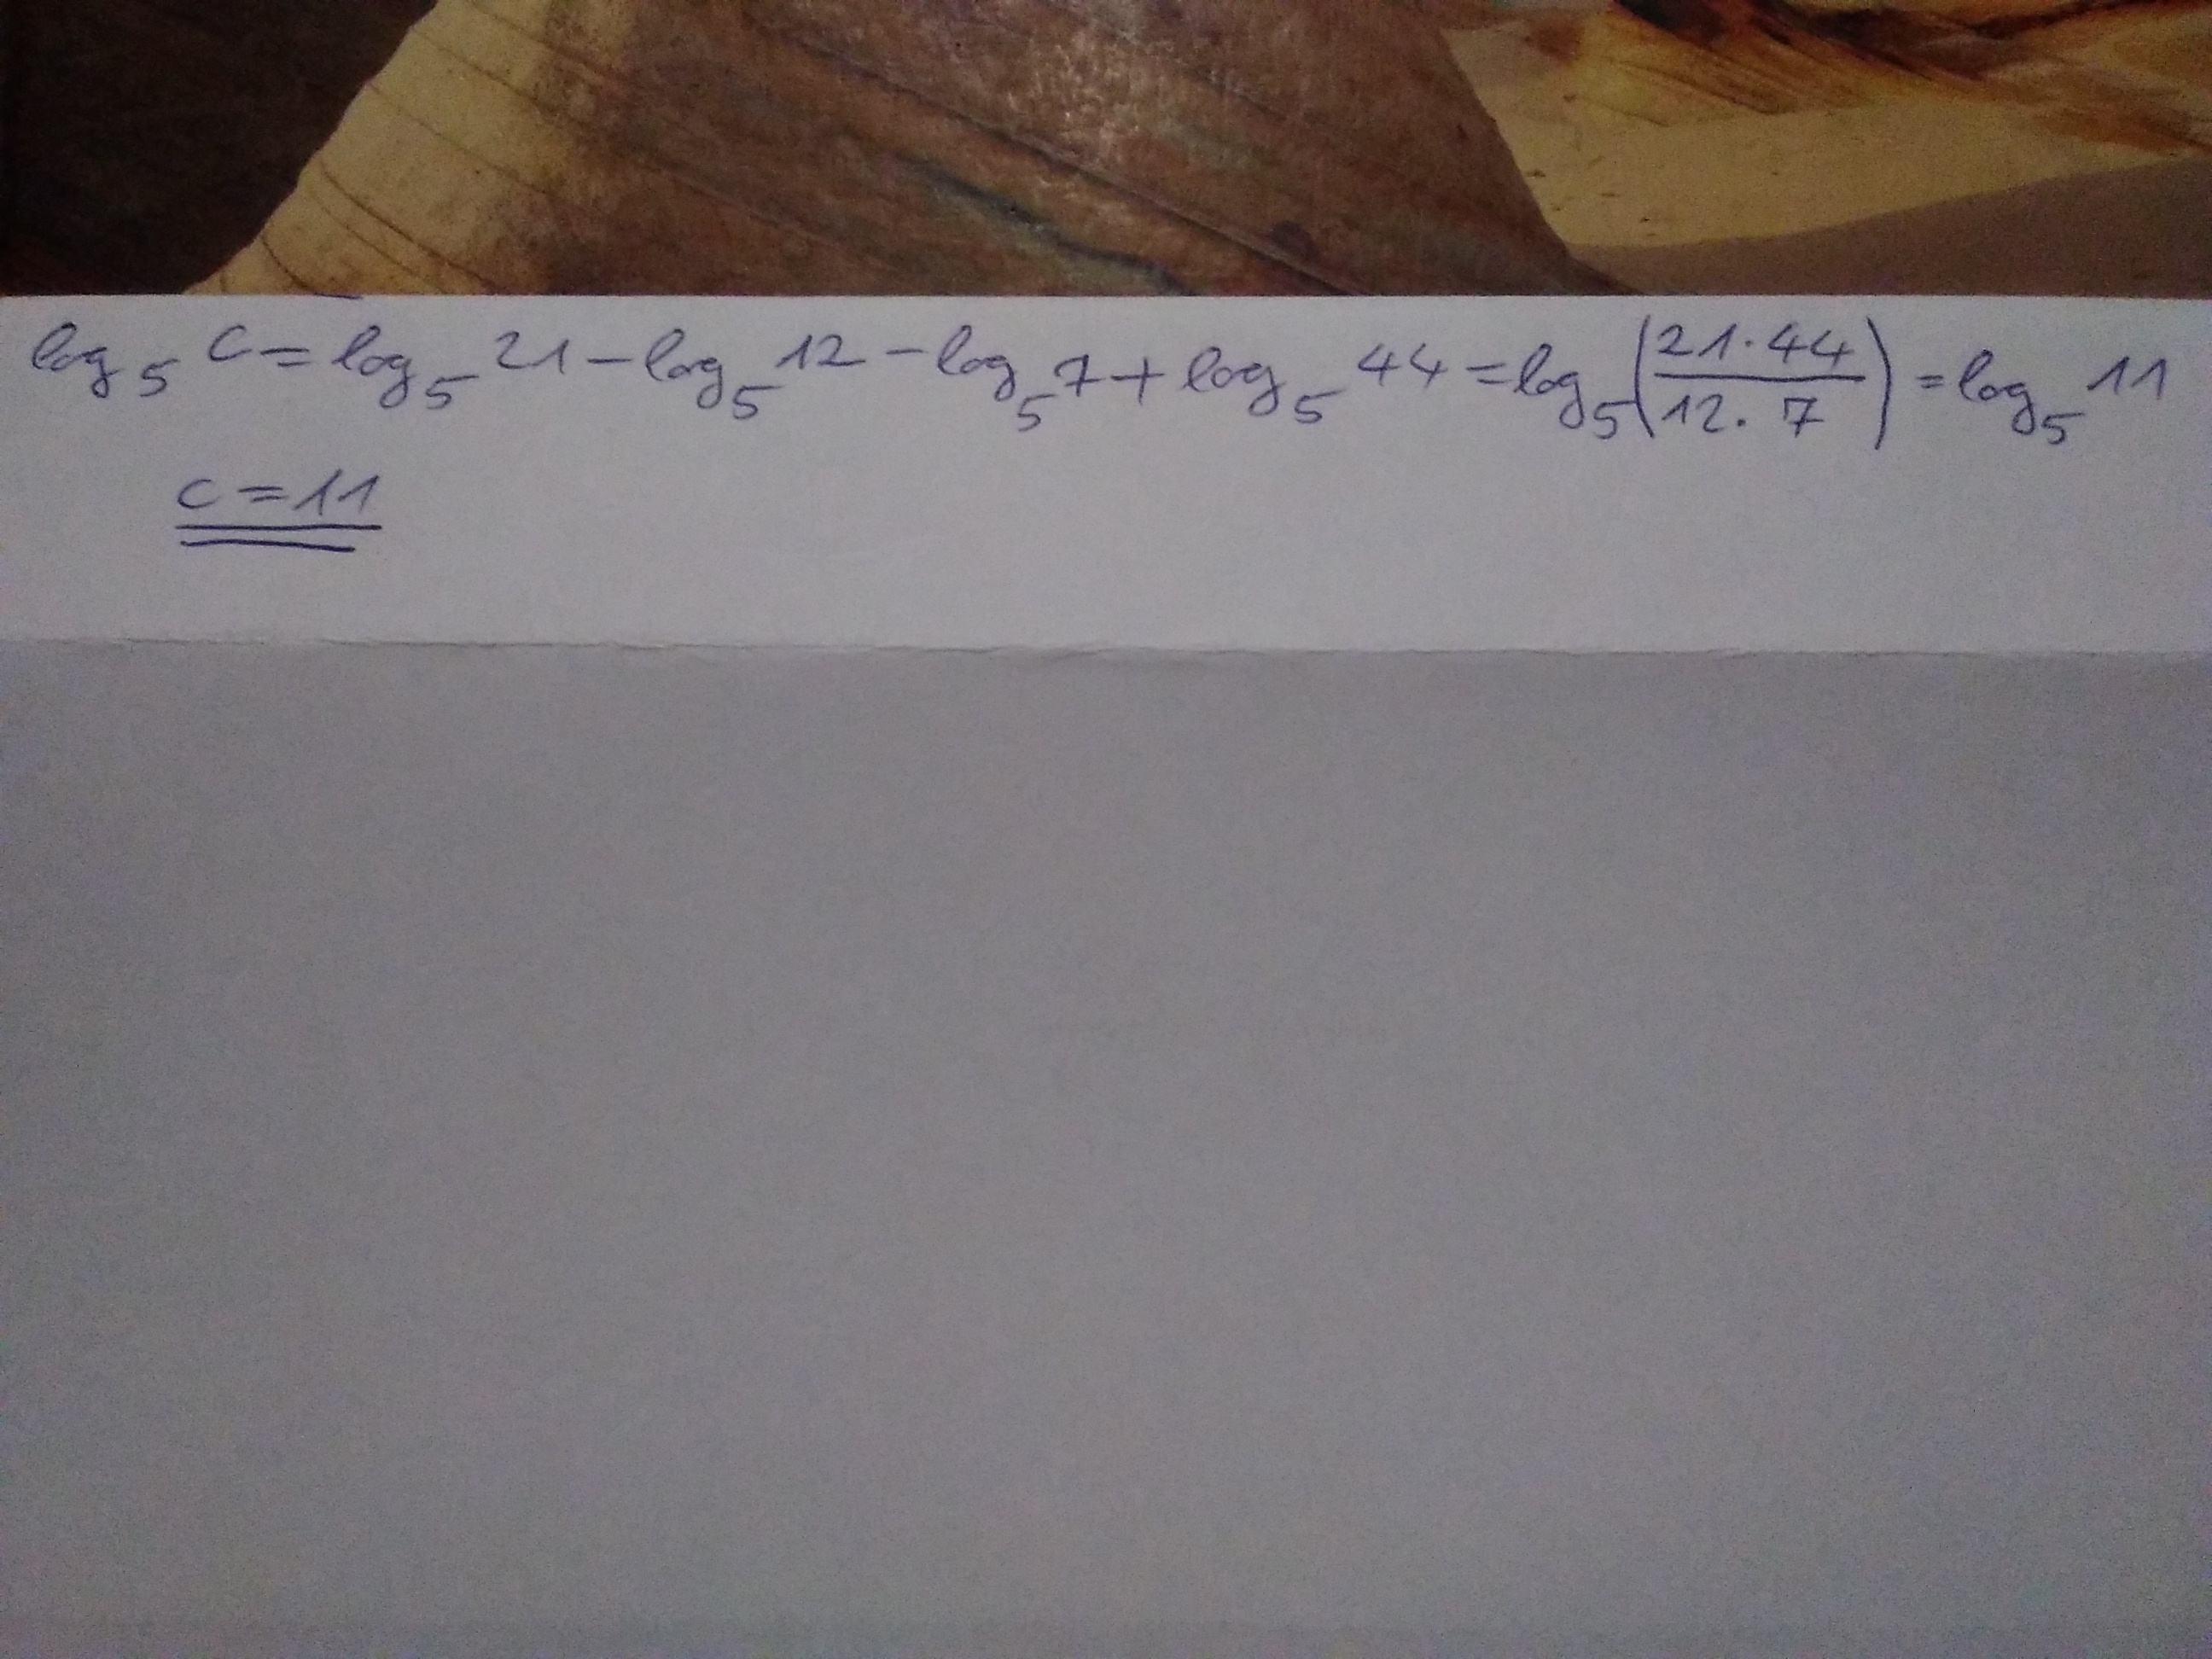 log₅ C = log₅ 21 - log₅ 12 - log₅ 7 + log₅ 44 = log₅ (21·44 / 12·7) = log₅ 11
c = 11